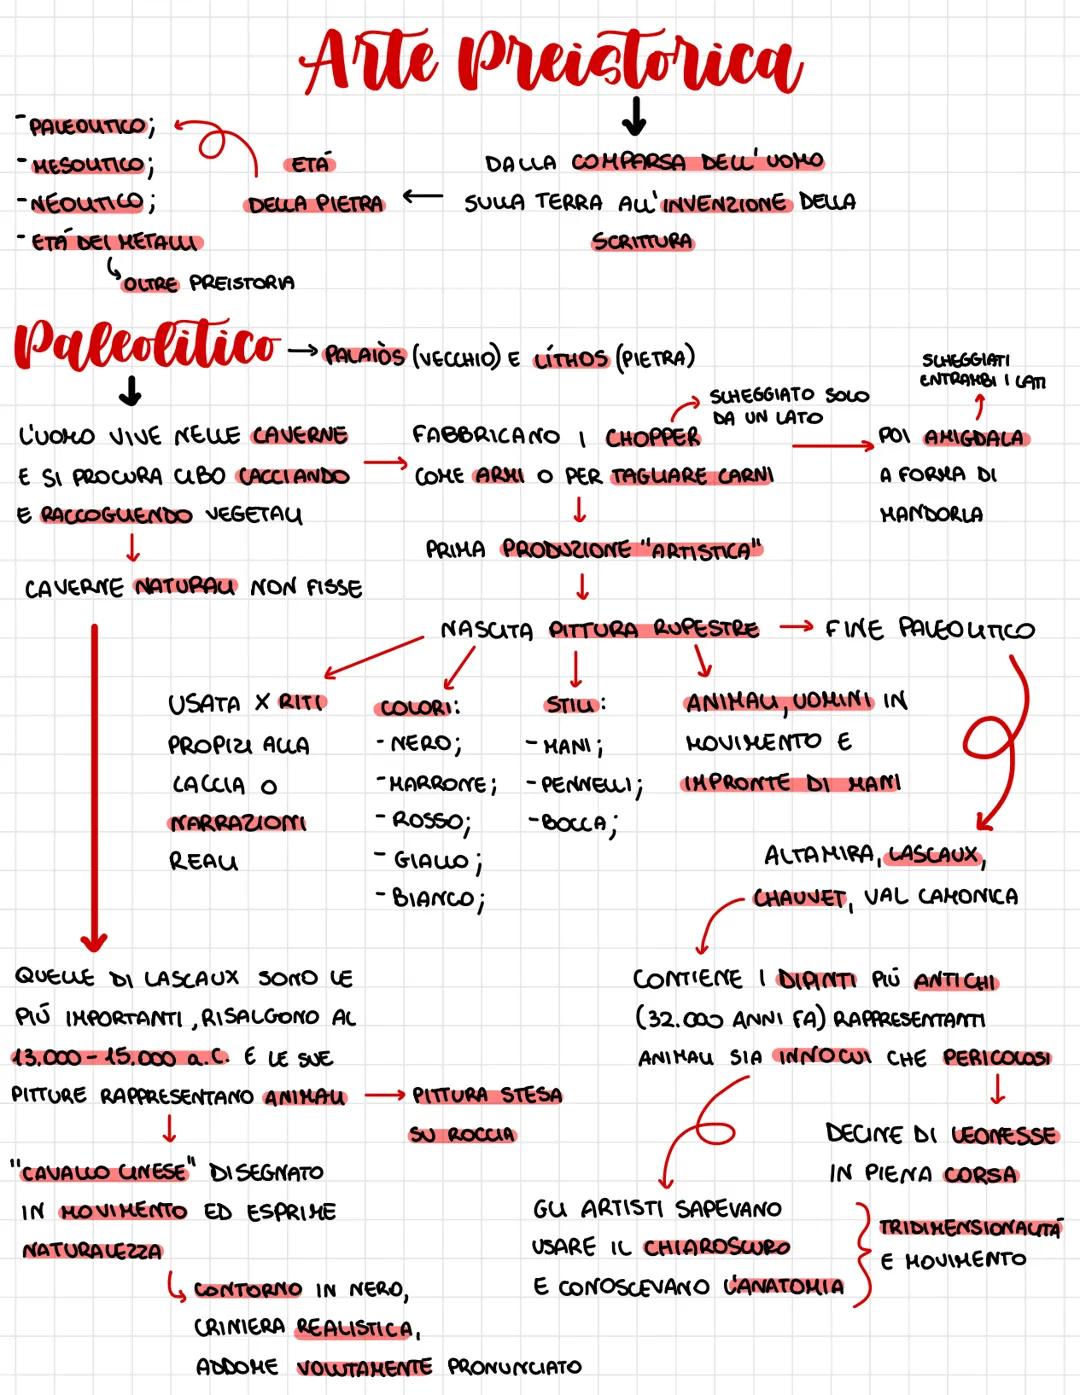 Arte Preistorica
- PALEOLITICO;
- MESOLITICO;
- NEOLITICO;
- ETÁ DEI METALLI
OLTRE PREISTORIA
ETÁ
DELLA PIETRA
DALLA COMPARSA DELL'UOMO
SULLA TERRA ALL'INVENZIONE DELLA
SCRITTURA
Paleolitico
PALAIÒS (VECCHIO) E LÍTHOS (PIETRA)
L'UOMO VIVE NELLE CAVERNE
E SI PROCURA CIBO CACCIANDO
E RACCOGLIENDO VEGETALI
CAVERNE NATURALI NON FISSE
FABBRICANO I CHOPPER
COME ARMI O PER TAGLIARE CARNI
SCHEGGIATO SOLO
DA UN LATO
POI AMIGDALA
A FORMA DI
MANDORLA
SCHEGGIATI
ENTRAMBI I LATI
PRIMA PRODUZIONE "ARTISTICA"
NASCITA PITTURA RUPESTRE
FINE PALEOLITICO
USATA X RITI
PROPIZI ALLA
CACCIA O
NARRAZIONI
REALI
COLORI:
- NERO;
- MARRONE;
- ROSSO;
- GIALLO;
- BIANCO;
STILI:
- MANI;
- PENNELLI;
- BOCCA;
ANIMALI, UOMINI IN
MOVIMENTO E
IMPRONTE DI MANI
ALTAMIRA, LASCAUX,
CHAUVET, VAL CAMONICA
QUELLE DI LASCAUX SONO LE
PIÚ IMPORTANTI, RISALGONO AL
13.000 - 15.000 a.C. E LE SUE
PITTURE RAPPRESENTANO ANIMALI
PITTURA STESA
SU ROCCIA
"CAVALLO CINESE" DISEGNATO
IN MOVIMENTO ED ESPRIME
NATURALEZZA
CONTORNO IN NERO,
CRINIERA REALISTICA,
ADDOME VOLUTAMENTE PRONUNCIATO
CONTIENE I DIPINTI PIÚ ANTICHI
(32.000 ANNI FA) RAPPRESENTANTI
ANIMALI SIA INNOCUI CHE PERICOLOSI
DECINE DI LEONESSE
IN PIENA CORSA
GLI ARTISTI SAPEVANO
USARE IL CHIAROSCURO
E CONOSCEVANO L'ANATOMIA
TRIDIMENSIONALITÁ
E MOVIMENTO